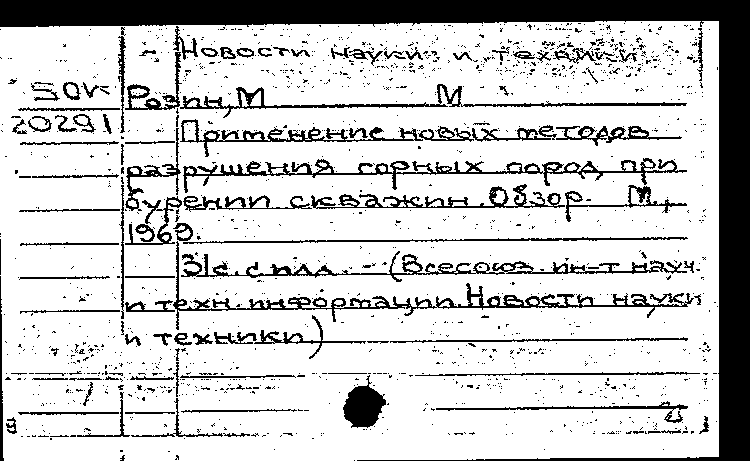 - Новости науки и техники
SOK Розин, М М
20291 Применение новых методов
разрушения горных пород при
бурении скважин. Обзор. М.,
1969.
31с. с илл. - (Всесоюз. ин-т науч.
и техн. информации. Новости науки
и техники)